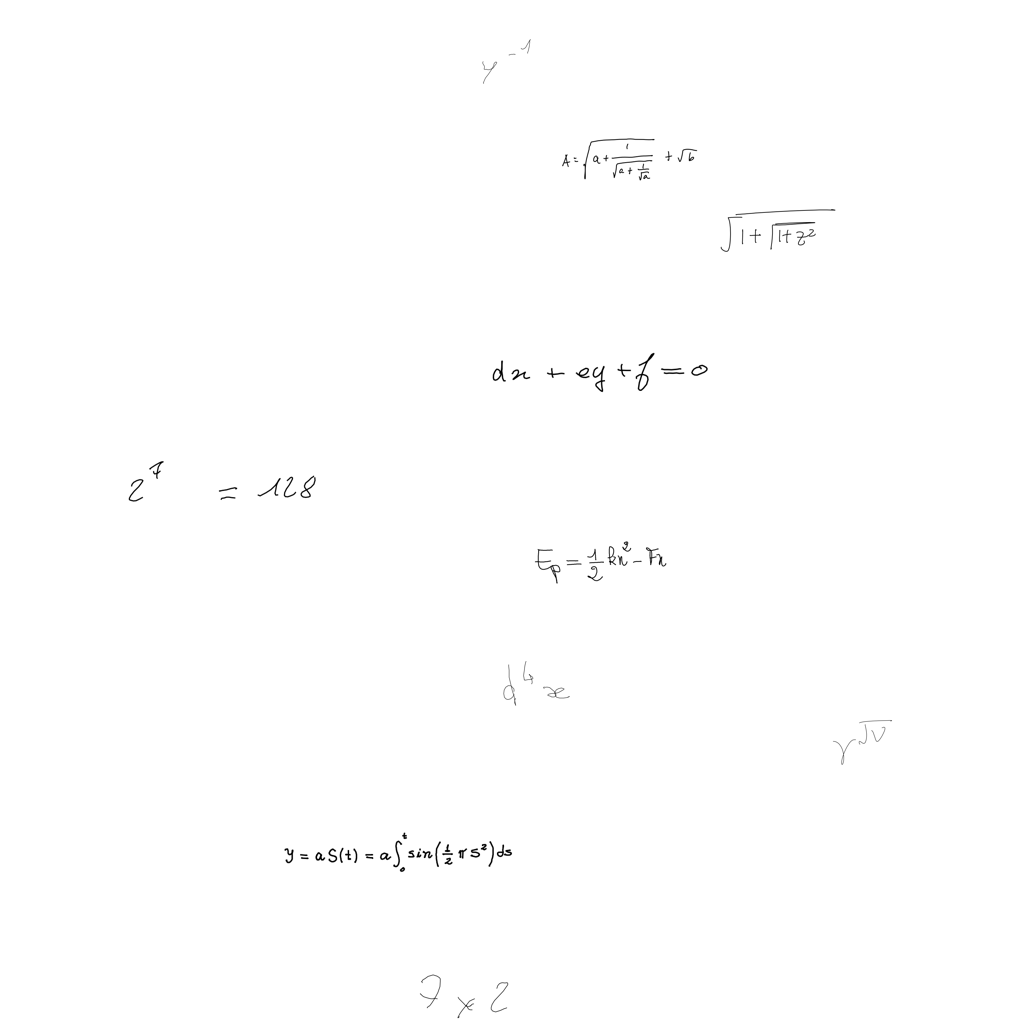 y^{-1}
A = \sqrt{a + \frac{1}{\sqrt{a + \frac{1}{\sqrt{a}}}}} + \sqrt{b}
\sqrt{1 + \sqrt{1 + z^2}}
dx + ey + f = 0
2^7 = 128
E_p = \frac{1}{2} k x^2 - Fx
d^4 x
\gamma^{\sqrt{v}}
y = a S(t) = a \int_0^t sin(\frac{1}{2} \pi s^2) ds
7 × 2